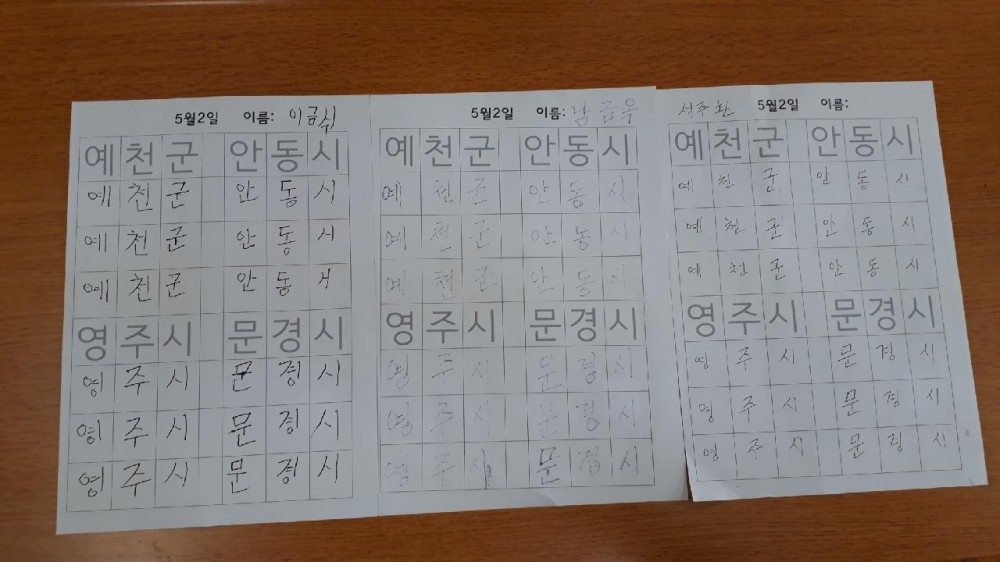 5월2일 이름: 이금쉬
예천군 안동시
예천군 안동시
예천군 안동시
예천군 안동시
영주시 문경시
영주시 문경시
영주시 문경시
영주시 문경시
5월2일 이름: 남금옥
예천군 안동시
예천군 안동시
예천군 안동시
예천군 안동시
영주시 문경시
영주시 문경시
영주시 문경시
영주시 문경시
석주환 5월2일 이름:
예천군 안동시
예천군 안동시
예천군 안동시
예천군 안동시
영주시 문경시
영주시 문경시
영주시 문경시
영주시 문경시